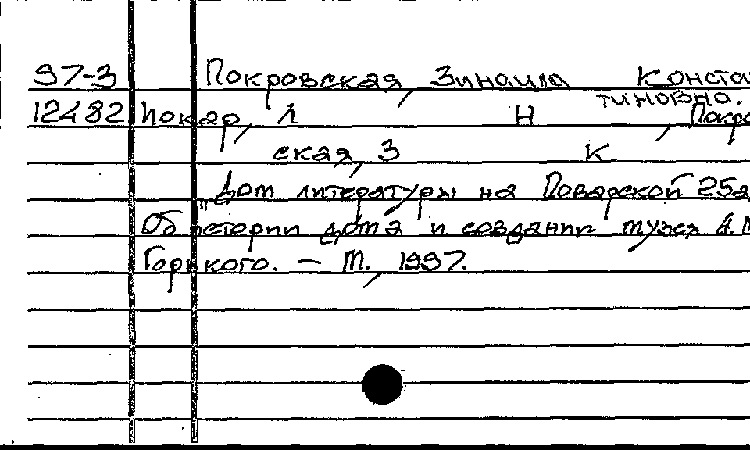 97-3 Покровская, Зинаида Конста
тиновна.
12482 Покар, Л Н , Покро
ская, З К
„Дом литературы на Поварской 25а
Об истории дома и создании музея А.М
Горького. – М., 1997.